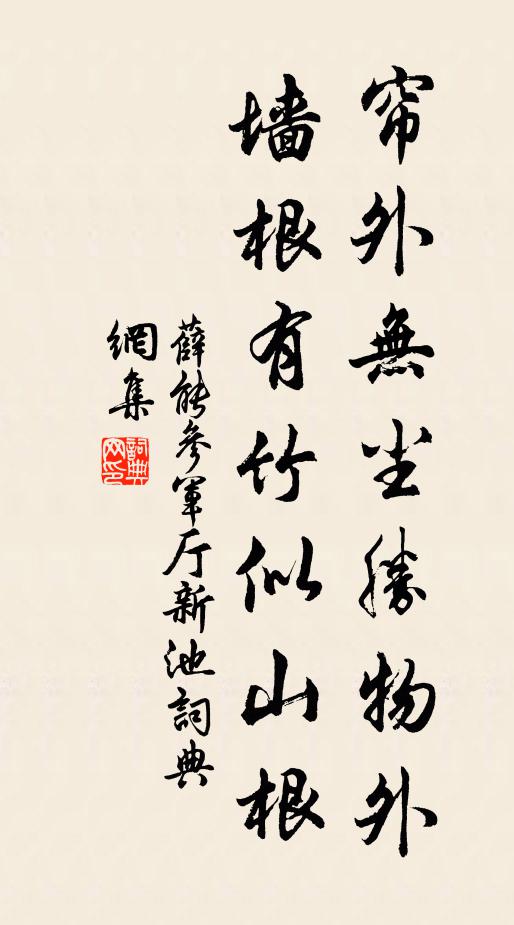 帘外無尘勝物外
墙根有竹似山根
薛能參軍厅新池詞典
網集
詞典网印